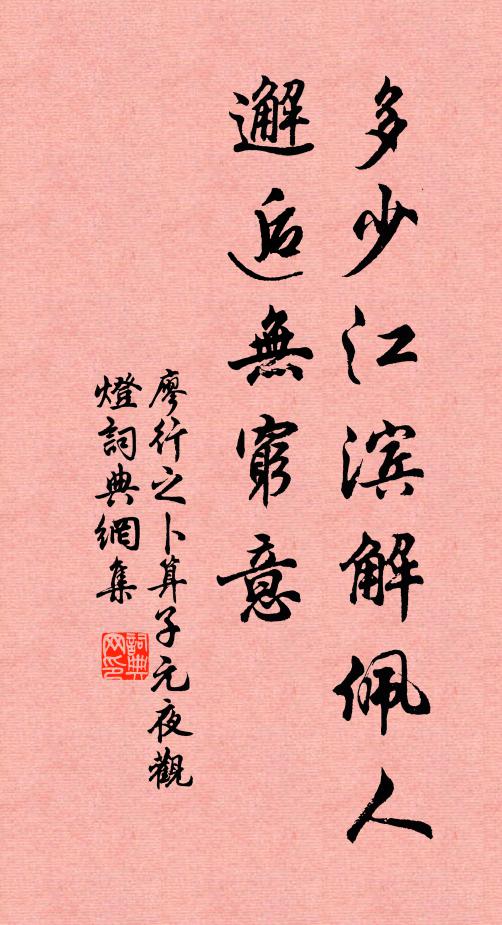 多少江滨解佩人
邂逅無窮意
廖行之卜算子元夜觀
燈詞典網集
詞典网印